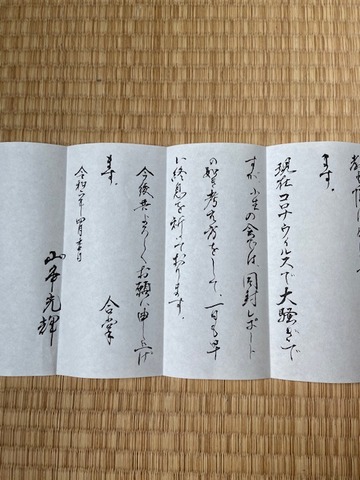 ます。
現在コロナウイルスで大騒ぎで
すが、小生の会では同封レポート
の如き考え方をして一日も早
い終息を祈っております。
今後共よろしくお願い申し上げ
ます。 合掌
令和二年四月吉日
山本光輝